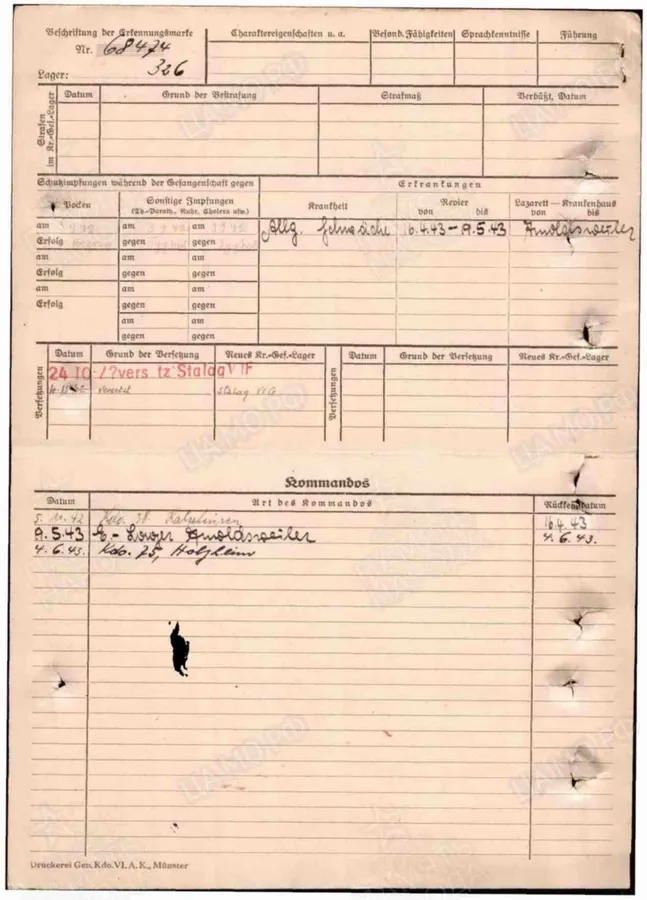 Beschriftung der Erkennungsmarke
Nr. 68474
Lager: 326
Charaktereigenschaften u. a.
Besond. Fähigkeiten
Sprachkenntnisse
Führung
Strafen im Kr.-Gef.-Lager
Datum
Grund der Bestrafung
Strafmaß
Verbüßt, Datum
Schutzimpfungen während der Gefangenschaft gegen
Erkrankungen
Pocken
Sonstige Impfungen
(Th.-Parath., Ruhr, Cholera usw.)
Krankheit
Revier
von bis
Lazarett — Krankenhaus
von bis
am am am
Allg. Schwäche 16.4.43 – 19.5.43 Arnoldsweiler
Erfolg gegen gegen
am am am
Erfolg gegen gegen
am am am
Erfolg gegen gegen
am am
gegen gegen
Versetzungen
Datum Grund der Versetzung Neues Kr.-Gef.-Lager
Versetzungen
Datum Grund der Versetzung Neues Kr.-Gef.-Lager
24 10 vers tz Stalag VI F
versetzt Stalag VI G
Kommandos
Datum Art des Kommandos Rückkehrdatum
5. 11. 42 Kdo. 16.4.43
19.5.43 E.-Lager Arnoldsweiler 4.6.43.
4.6.43. Kdo. 75, Holzheim
Druckerei Gen. Kdo. VI. A. K., Münster
ЦАМО РФ